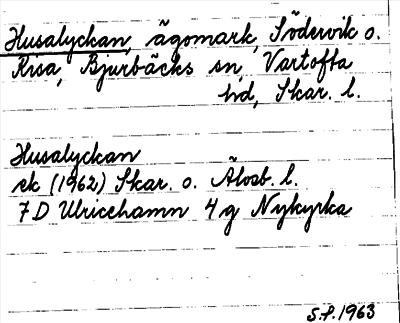 Husalyckan, ägomark, Södervik o.
Risa, Bjurbäcks sn, Vartofta
hd, Skar. l.
Husalyckan
ek (1962) Skar. o. Älvsb. l.
7D Ulricehamn 4g Nykyrka
S.F. 1963